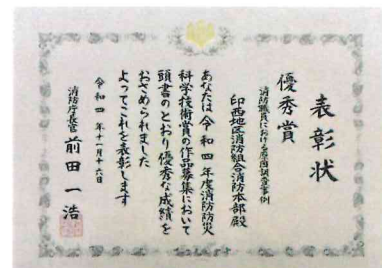 表彰状
優秀賞
消防職員における原因調査事例
印西地区消防組合消防本部殿
あなたは令和四年度消防防災
科学技術賞の作品募集において
頭書のとおり優秀な成績を
おさめられました
よってこれを表彰します
令和四年十一月十六日
消防庁長官 前田一浩